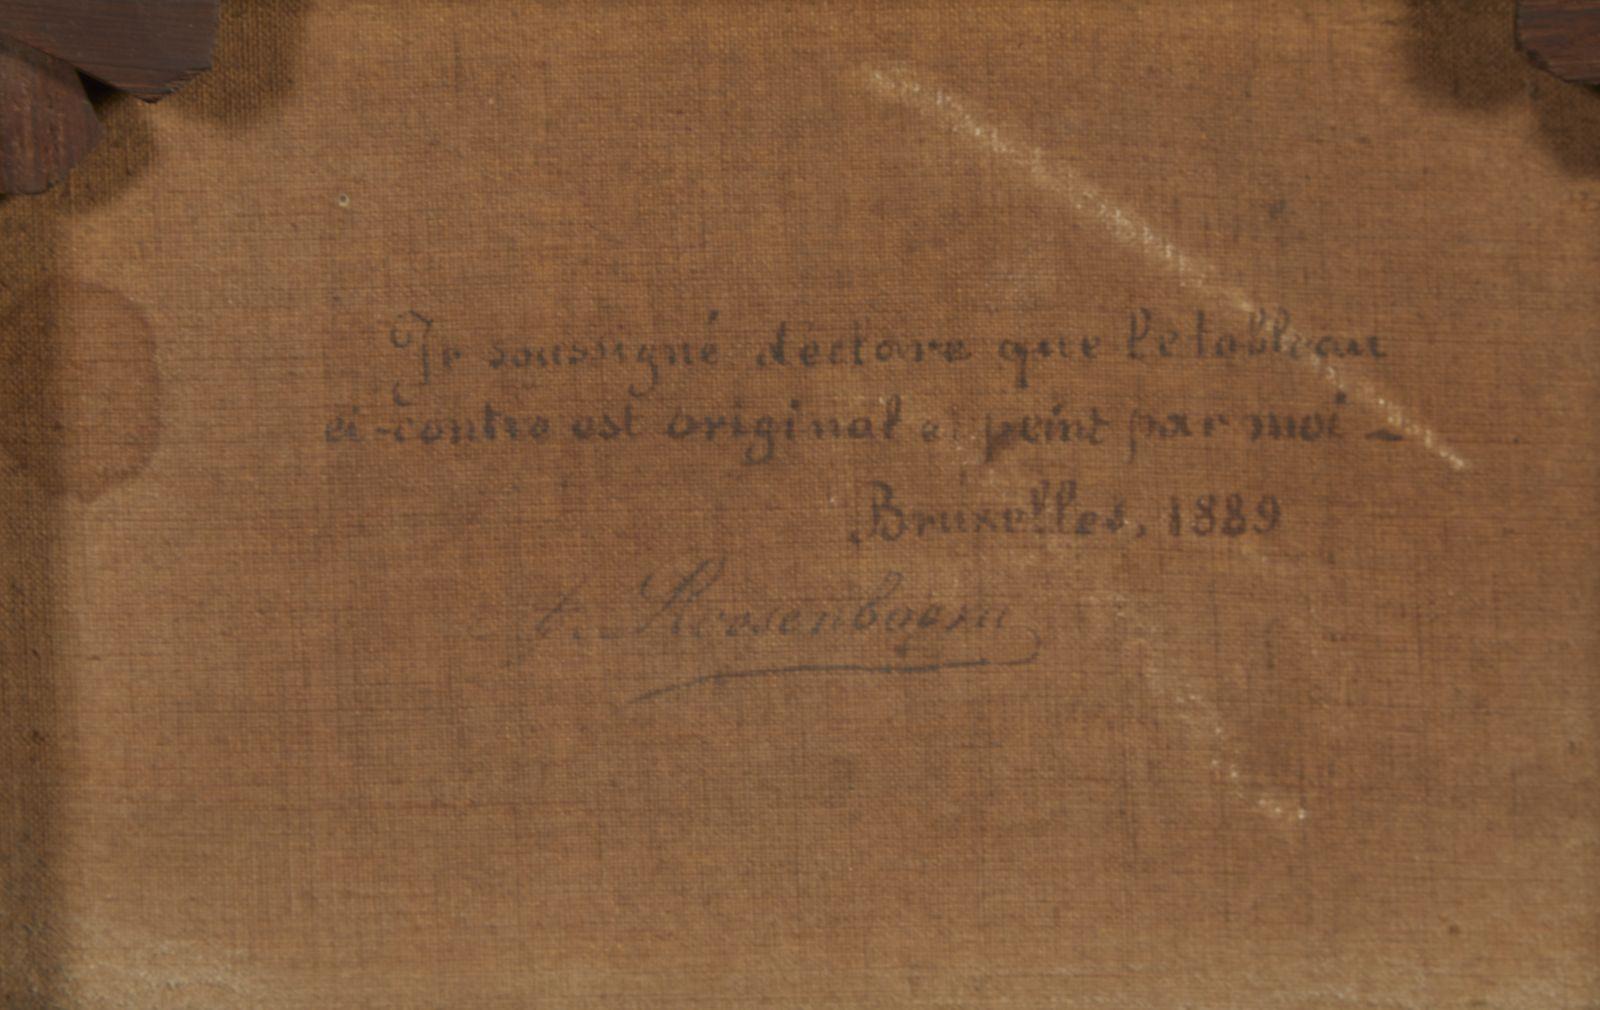 Je soussigné déclare que le tableau
ci-contre est original et peint par moi -
Bruxelles, 1889
A. Roosenboom